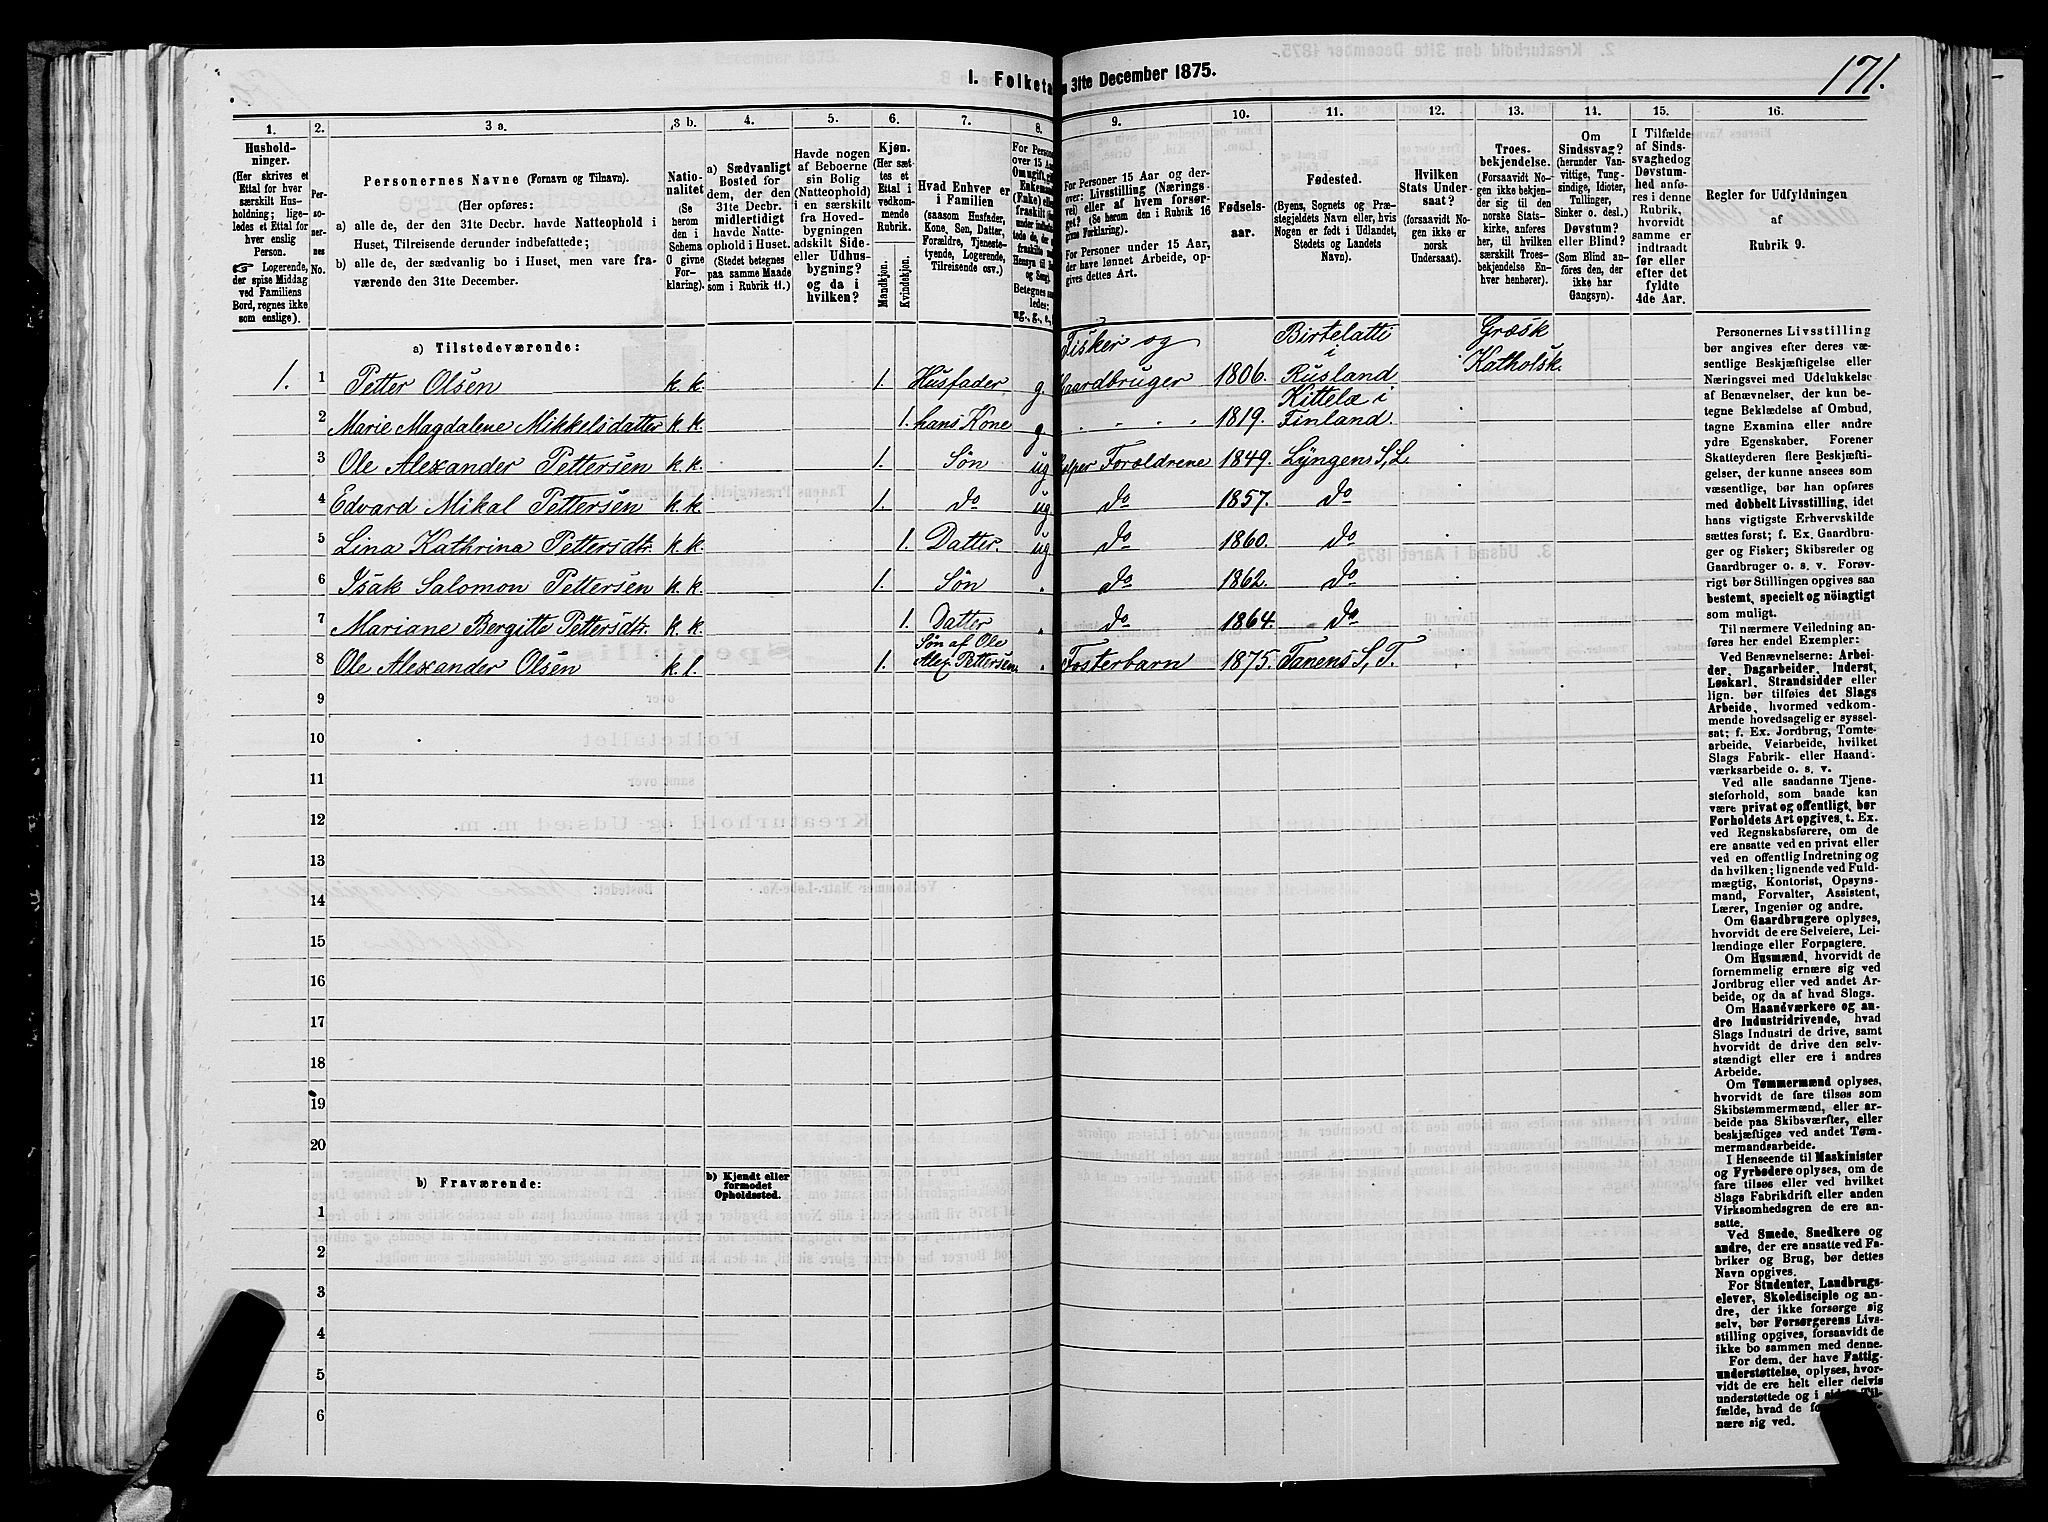 171.
1. Folketa
31te December 1875.
1.
Hushold-
ninger.
(Her skrives et
Ettal for hver
særskilt Hus-
holdning; lige-
ledes et Ettal for
hver enslig
Person.
☞ Logerende,
der spise Middag
ved Familiens
Bord, regnes ikke
som enslige).
2.
Per-
so-
ner-
nes
No.
3 a.
Personernes Navne (Fornavn og Tilnavn).
(Her opføres:
a) alle de, der den 31te Decbr. havde Natteophold i
Huset, Tilreisende derunder indbefattede;
b) alle de, der sædvanlig bo i Huset, men vare fra-
værende den 31te December.
3 b.
Natio-
nalitet
(Se
herom
den i
Schema
O givne
For-
klaring).
4.
a) Sædvanligt
Bosted for
dem, der den
31te Decbr.
midlertidigt
havde Natte-
ophold i Huset.
(Stedet betegnes
paa samme Maade
som i Rubrik 11.)
5.
Havde nogen
af Beboerne
sin Bolig
(Natteophold)
i en særskilt
fra Hoved-
bygningen
adskilt Side-
eller Udhus-
bygning?
og da i
hvilken?
6.
Kjøn.
(Her sæt-
tes et
Ettal i
vedkom-
mende
Rubrik.
Mandkjøn.
Kvindekjøn.
7.
Hvad Enhver er
i Familien
(saasom Husfader,
Kone, Søn, Datter,
Forældre, Tjeneste-
tyende, Logerende,
Tilreisende osv.)
8.
For Persone
over 15 Aar
Betegnes
ledes:
ug., g., e.,
9.
For Personer 15 Aar og der-
over: Livsstilling (Nærings-
vei) eller af hvem forsør-
get? (Se herom den i Rubrik 16
givne Forklaring).
For Personer under 15 Aar,
der have lønnet Arbeide, op-
gives dettes Art.
10.
Fødsels-
aar.
11.
Fødested.
(Byens, Sognets og Præ-
stegjeldets Navn eller, hvis
Nogen er født i Udlandet,
Stedets og Landets
Navn).
12.
Hvilken
Stats Under-
saat?
(forsaavidt No-
gen ikke er
norsk
Undersaat).
13.
Troes-
bekjendelse.
(Forsaavidt No-
gen ikke bekjen-
der sig til den
norske Stats-
kirke, anføres
her, til hvilken
særskilt Troes-
bekjendelse En-
hver henhører).
14.
Om
Sindssvag?
(herunder Van-
vittige, Tung-
sindige, Idioter,
Tullinger,
Sinker o. desl.)
Døvstum?
eller Blind?
(Som Blind an-
føres den, der
ikke har
Gangsyn).
15.
I Tilfælde
af Sinds-
svaghed og
Døvstum-
hed anfø-
res i denne
Rubrik,
hvorvidt
samme er
indtraadt
før eller
efter det
fyldte
4de Aar.
16.
Regler for Udfyldningen
af
Rubrik 9.
a) Tilstedeværende:
Fisker og Birtelatti Græsk
i Katholsk.
1. 1 Petter Olsen k. k. 1. Husfader g. Gaardbruger 1806. Rusland
Kittelæ i
2 Marie Magdalene Mikkelsdatter k. k. 1. hans Kone g 1819. Finland.
3 Ole Alexander Pettersen k. k. 1. Søn ug Hjelper Foroldrene 1849. Lyngens S, L.
4 Edvard Mikal Pettersen k. k. 1. do ug do 1857. do
5 Lina Kathrina Pettersdtr. k. k. 1. Datter. ug do 1860. do
6 Isak Salomon Pettersen k. k. 1. Søn do 1862. do
7 Mariane Bergitte Pettersdtr. k. k. 1. Datter do 1864. do
Søn af Ole
8 Ole Alexander Olsen k. l. 1. Alex. Pettersen Fosterbarn 1875. Tanens S, T.
9
10
11
12
13
14
15
16
17
18
19
20
b) Fraværende:
b) Kjendt eller
formodet
Opholdssted.
1
2
3
4
5
6
Personernes Livsstilling
bør angives efter deres væ-
sentlige Beskjæftigelse eller
Næringsvei med Udelukkelse
af Benævnelser, der kun be-
tegne Beklædelse af Ombud,
tagne Examina eller andre
ydre Egenskaber. Forener
Skatteyderen flere Beskjæfti-
gelser, der kunne ansees som
væsentlige, bør han opføres
med dobbelt Livsstilling, idet
hans vigtigste Erhvervskilde
sættes først; f. Ex. Gaardbru-
ger og Fisker; Skibsreder og
Gaardbruger o. s. v. Forøv-
rigt bør Stillingen opgives saa
bestemt, specielt og nöiagtigt
som muligt.
Til nærmere Veiledning an-
føres her endel Exempler:
Ved Benævnelserne: Arbei-
der, Dagarbeider, Inderst,
Løskarl, Strandsidder eller
lign. bør tilføies det Slags
Arbeide, hvormed vedkom-
mende hovedsagelig er syssel-
sat; f. Ex. Jordbrug, Tomte-
arbeide, Veiarbeide, hvilket
Slags Fabrik- eller Haand-
værksarbeide o. s. v.
Ved alle saadanne Tjene-
steforhold, som baade kan
være privat og offentligt, bør
Forholdets Art opgives, t. Ex.
ved Regnskabsførere, om de
ere ansatte ved en privat eller
ved en offentlig Indretning og
da hvilken; lignende ved Fuld-
mægtig, Kontorist, Opsyns-
mand, Forvalter, Assistent,
Lærer, Ingeniør og andre.
Om Gaardbrugere oplyses,
hvorvidt de ere Selveiere, Lei-
lændinge eller Forpagtere.
Om Husmænd, hvorvidt de
fornemmelig ernære sig ved
Jordbrug eller ved andet Ar-
beide, og da af hvad Slags.
Om Haandværkere og an-
dre Industridrivende, hvad
Slags Industri de drive, samt
hvorvidt de drive den selv-
stændigt eller ere i andres
Arbeide.
Om Tømmermænd oplyses,
hvorvidt de fare tilsøs som
Skibstømmermænd, eller ar-
beide paa Skibsværfter, eller
beskjæftiges ved andet Tøm-
mermandsarbeide.
I Henseende til Maskinister
og Fyrbødere oplyses, om de
fare tilsøs eller ved hvilket
Slags Fabrikdrift eller anden
Virksomhedsgren de ere an-
satte.
Ved Smede, Snedkere og
andre, der ere ansatte ved Fa-
briker og Brug, bør dettes
Navn opgives.
For Studenter, Landbrugs-
elever, Skoledisciple og an-
dre, der ikke forsørge sig
selv, bør Forsørgerens Livs-
stilling opgives, forsaavidt de
ikke bo sammen med denne.
For dem, der have Fattig-
understøttelse, oplyses, hvor-
vidt de ere helt eller delvis
understøttede og i sidste Til-
fælde, hvad de
nære sig ved.